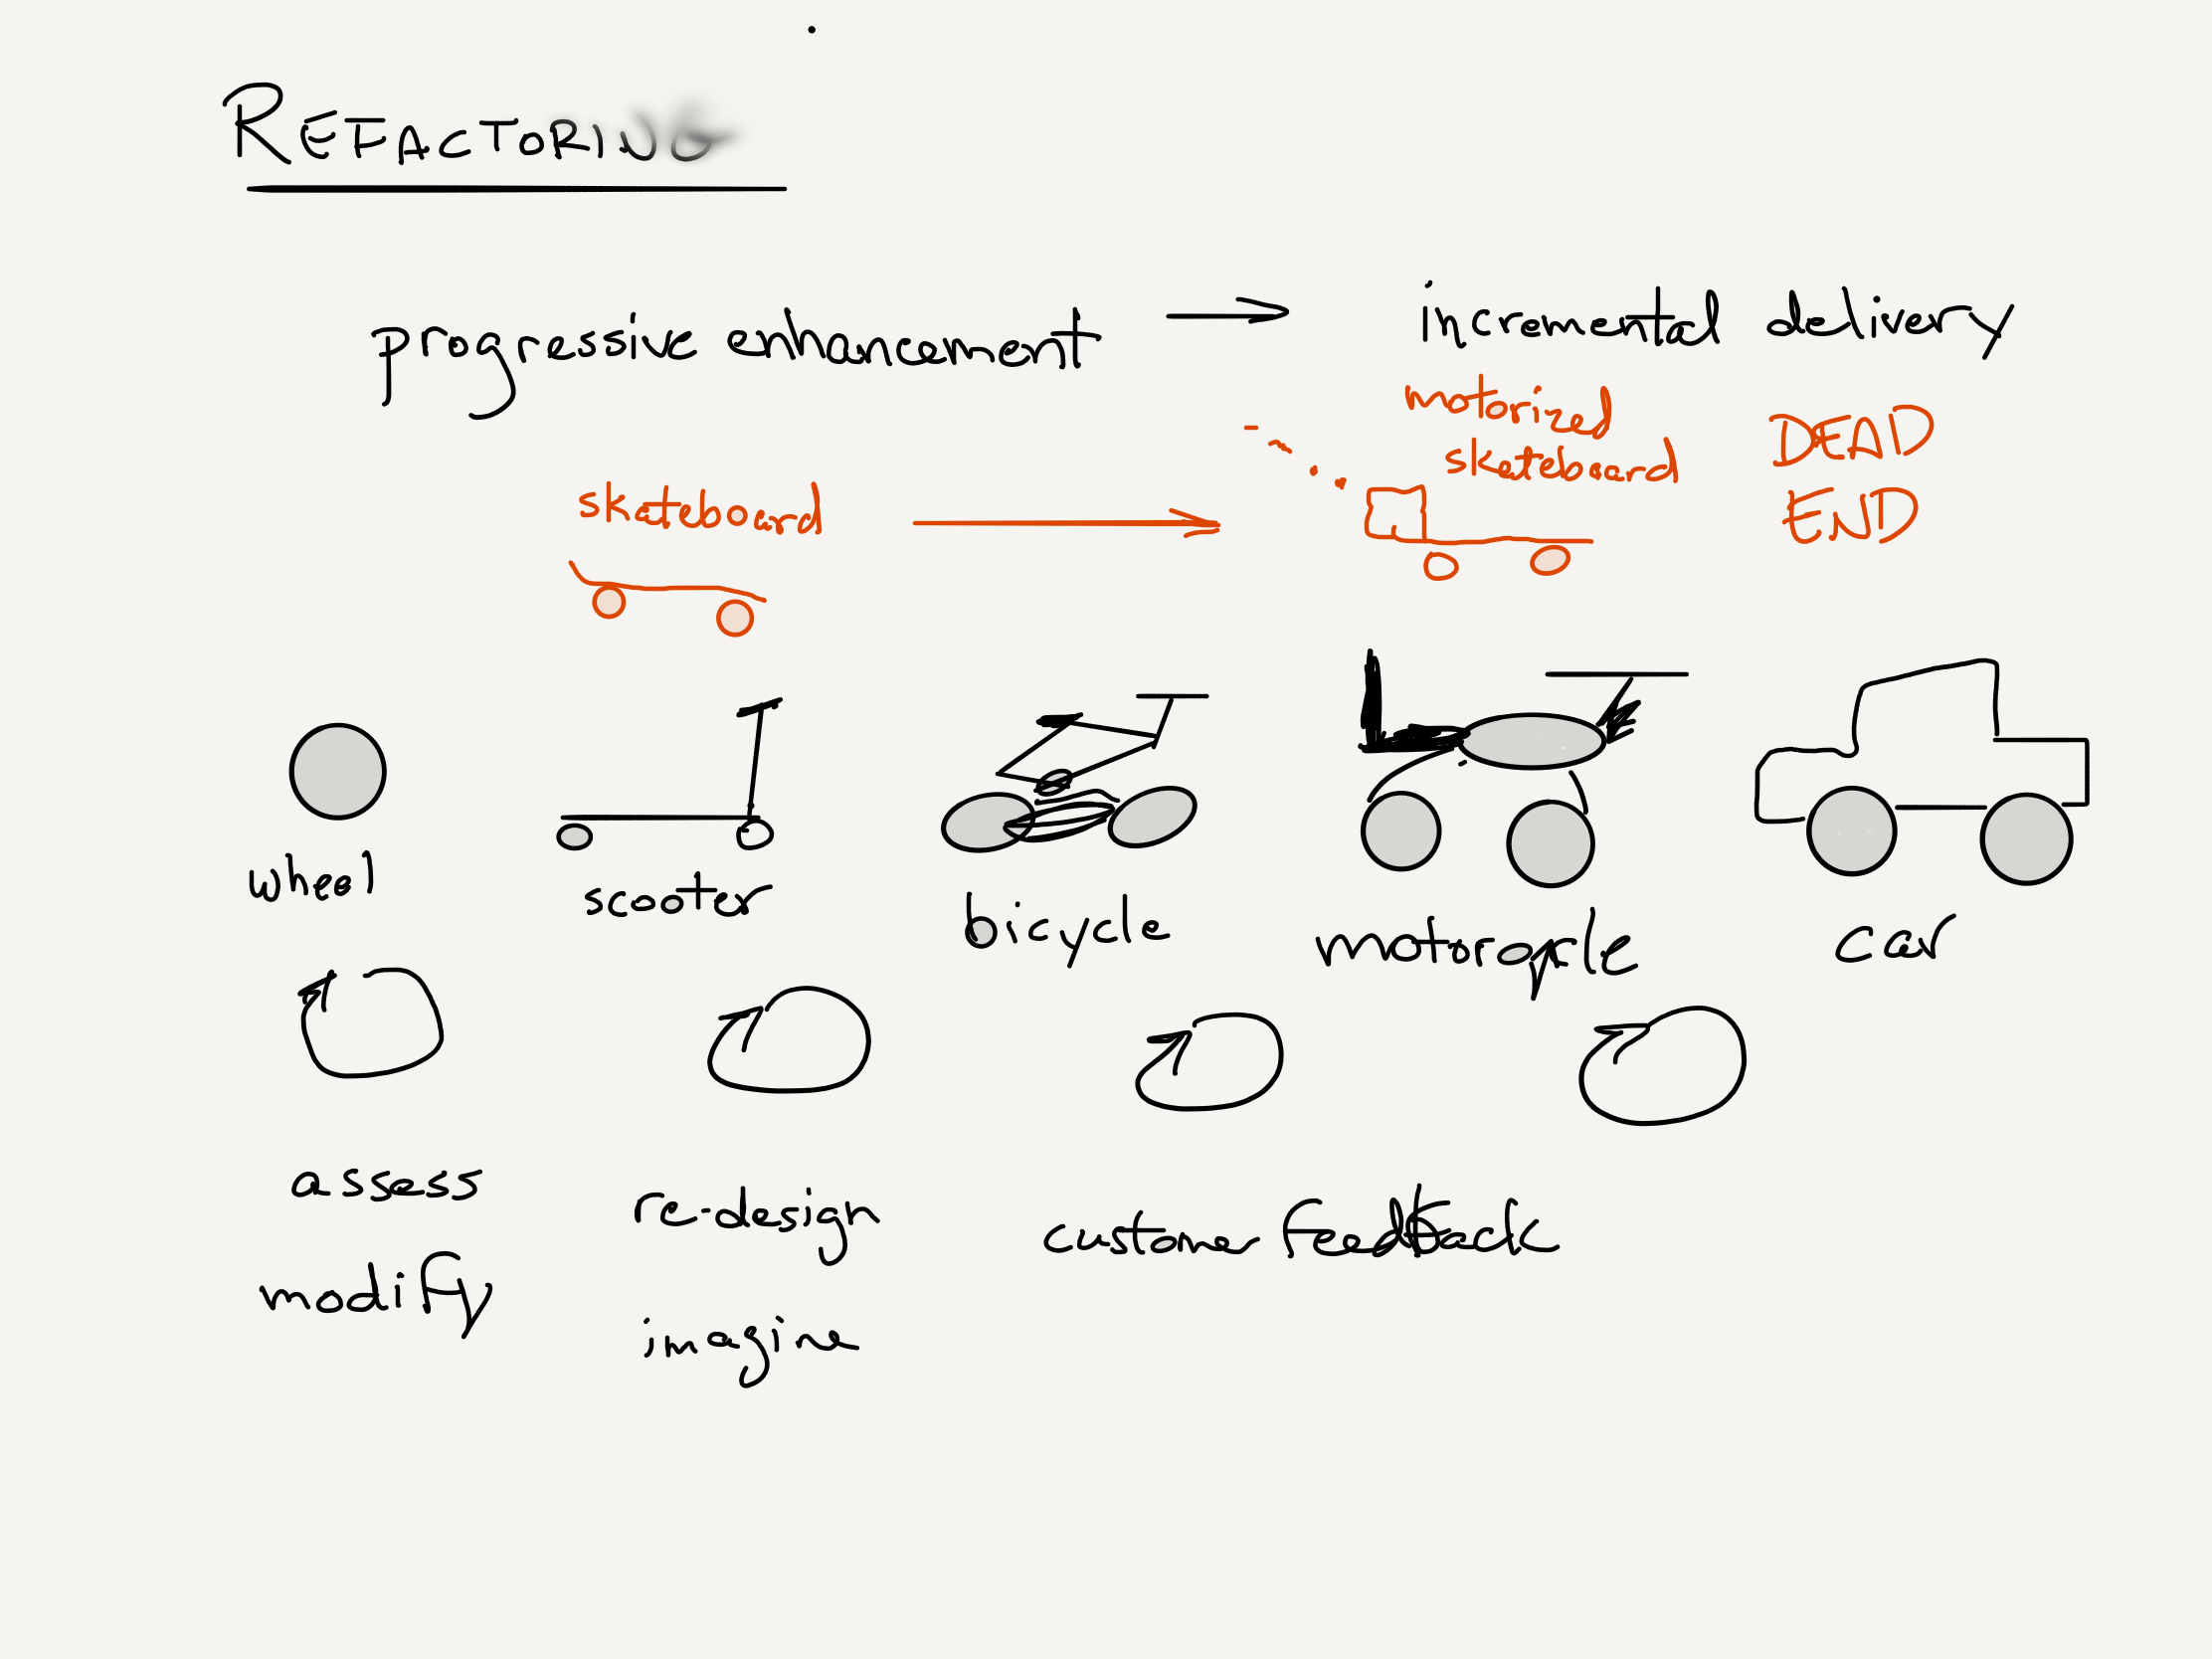 REFACTORING
progressive enhancement → incremental delivery
motorized
skateboard
DEAD
END
skateboard
wheel
scooter
bicycle
motorcycle
car
assess
modify
re-design
imagine
customer feedback